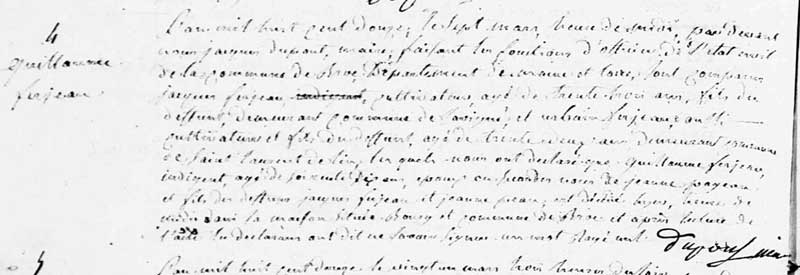 L'an mil huit cent douze, le sept mars, heure de midi, pardevant
4
nous jacques dupont, maire, faisant les fonctions d'officier de l'état civil
guillaume
de la commune de Broc, Département de maine et loire, sont comparus
ferjeau
jacques ferjeau indigent, cultivateur, agé de trente trois ans, fils du
deffunt, demeurant commune de Savigné, et urbain ferjeau, aussi
cultivateur et fils du deffunt, agé de trente deux ans demeurant commune
de Saint Laurent de lin, lesquels nous ont déclaré que guillaume ferjeau,
indigent, agé de soixante ans, epoux en secondes noces de jeanne
et fils des deffunts jacques ferjeau et jeanne est décédé hier, heure de
midi dans la maison située commune de Broc et après lecture de
l'acte les déclarans ont dit ne savoir signer un mot rayé nul. Dupont maire
5
L'an mil huit cent douze le vingt un mars trois heures